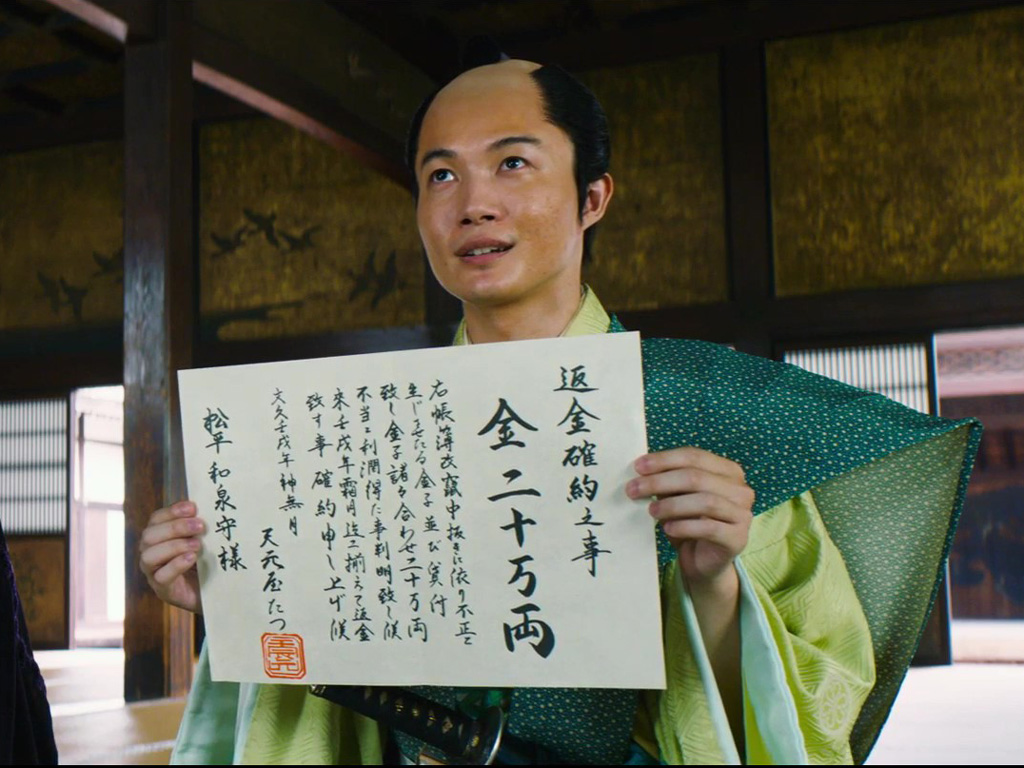 返金確約之事
金二十万両
右帳簿改竄中抜きに依り不正に
生じさせたる金子並び貸付
致し金子諸々合わせ二十万両
不当に利潤得た事判明致し候
来壬戌年霜月迄に揃えて返金
致す事確約申し上げ候
文久壬戌年神無月
天元屋たつ
松平和泉守様